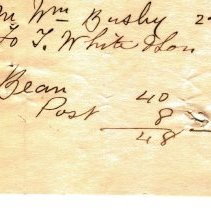 Mr Wm Busby 2
To T. White & Son
Bean 40
Post 8
48